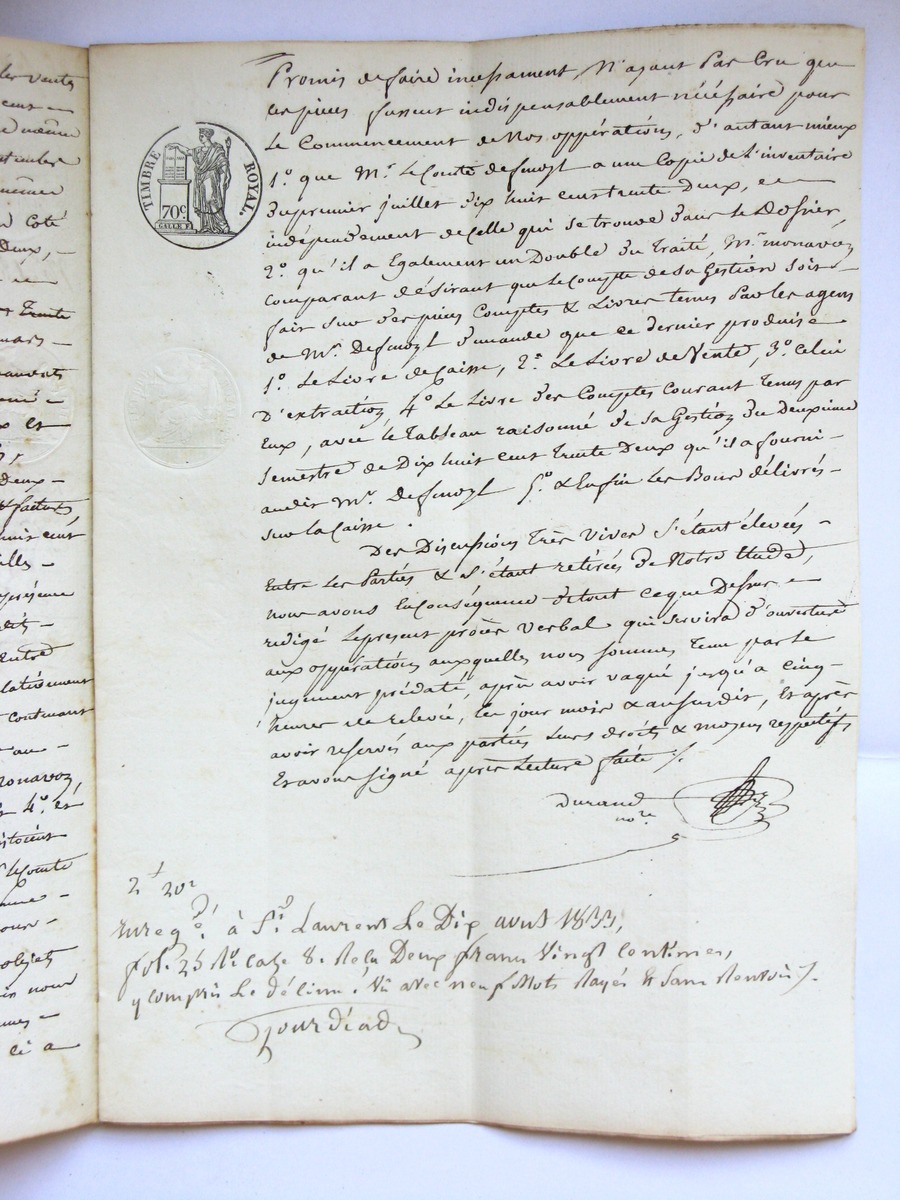 TIMBRE ROYAL.
70c.
Promis de faire incessament N'ayant Pas Cru que
ces pièces fussent indispensablement nécessaire pour
Le Commencement de Nos oppérations, D'autant mieux
1º. que Mr. Le Comte a une Copie de L'inventaire
Du premier juillet Dix huit cent trente Deux, et
indépendament de celle qui se trouve dans le Dossier,
2º. qu'il a Egalement un Double du Traité, Mr. monavoz
Comparant désirant que le Compte de sa Gestion soit
fait sur Les Comptes & Livres tenus Par les agens
de Mr. demande que ce dernier produise
1º. Le Livre de Caisse, 2º. Le Livre de Vente, 3º. Celui
D'extraction, 4º. Le Livre des Comptes Courant tenus par
Eux, avec le tableau raisonné de sa Gestion du Deuxième
Semestre de Dix huit cent Trente Deux qu'il a fourni
audit Mr. 5º. & Enfin Les Bons délivrés
sur la Caisse.
Des Discussions très Vives S'étant élevées
Entre Les Parties & S'étant retirées de Notre Etude,
nous avons En Conséquence de tout ce que Dessus
redigé le present procès Verbal qui servira d'ouverture
aux oppérations auxquelles nous sommes Tenu par le
jugement prédaté, après avoir vaqué jusqu'à cinq
heures de relevée, les jour mois & an susdit, Et après
avoir reservés aux parties leurs droits & moyens respectifs
Et avons signé après Lecture faite ./.
Durand
nore
2f 20c
Enregé. à St. Laurent Le Dix avril 1833,
fol. 25 Ro. Case 8. Reçu Deux francs Vingt Centimes,
y compris Le décime. Vu avec neuf Mots Rayés & Sans Renvois ./.